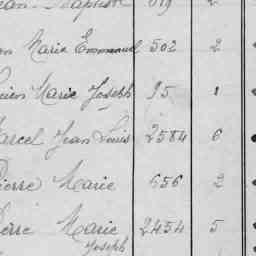 Jean Baptiste 619 2
Marie Emmanuel 502 2
Marie Joseph 95 1
Marcel Jean Louis 2584 6
Pierre Marie 656 2
Pierre Marie 2454 5
Joseph